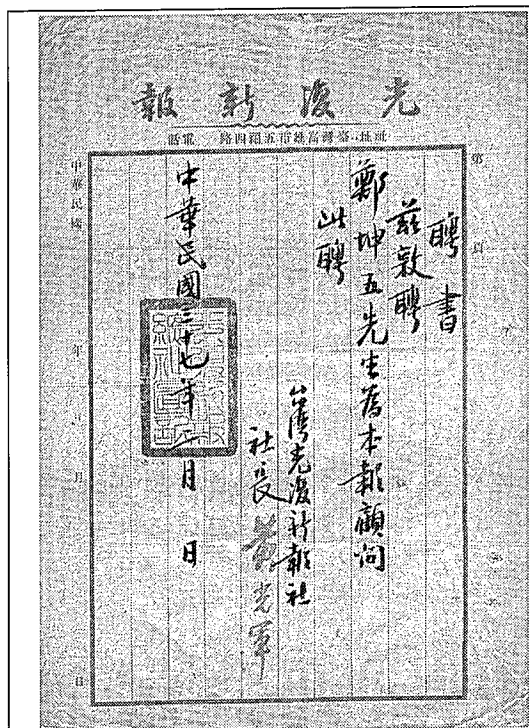 光復新報
社址·臺灣高雄市五福四路 電話
第 頁
聘書
茲敦聘
鄭坤五先生為本報顧問
此聘
台灣光復新報社
社長 黃光軍
中華民國三十七年二月 日
中華民國 年 月 日